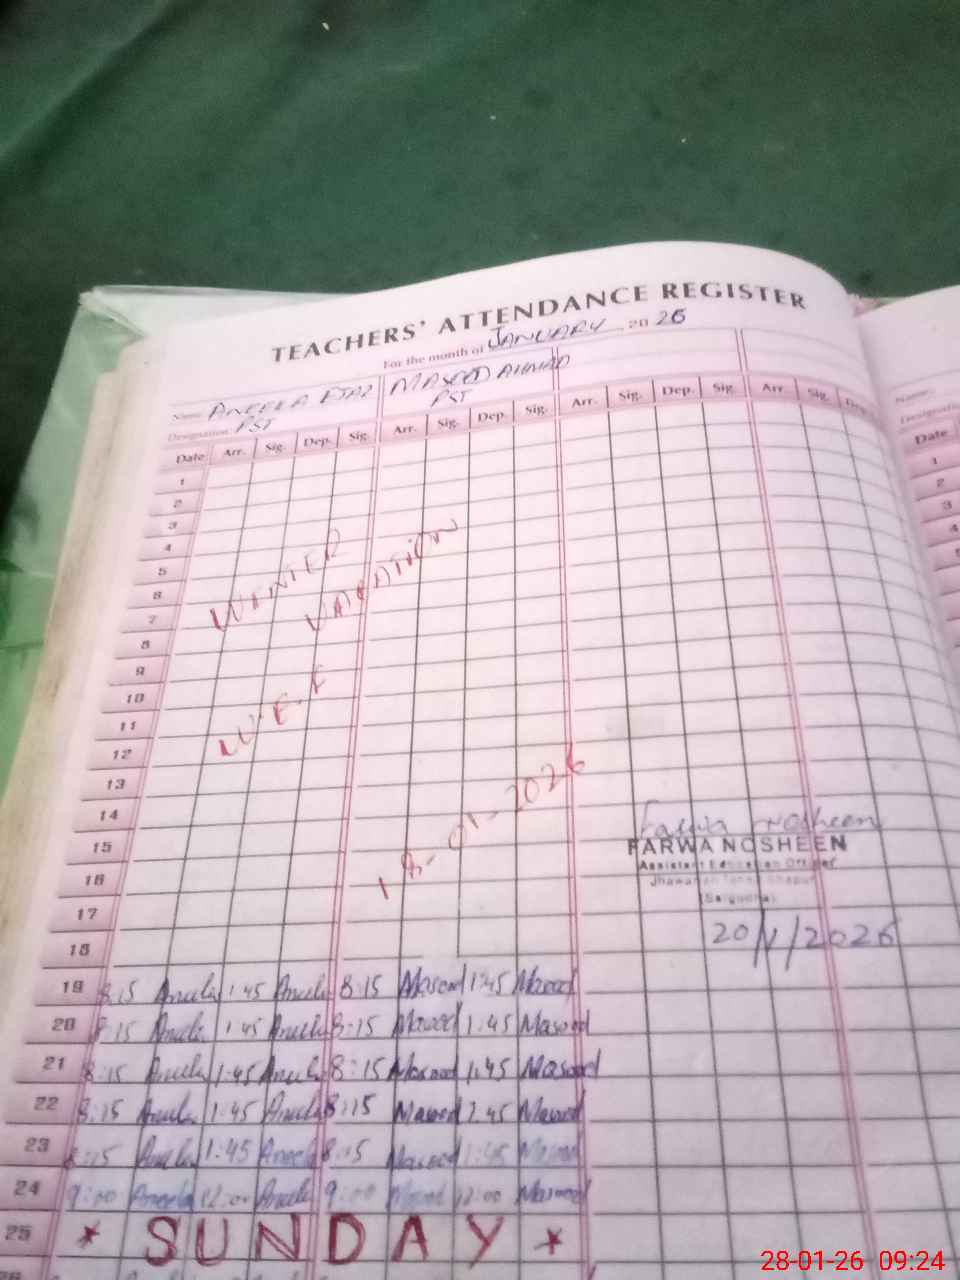 TEACHERS' ATTENDANCE REGISTER
For the month of JANUARY 2026
Name: ANEELA EJAZ MASOOD AHMAD
Designation: PST PST
Date Arr. Sig. Dep. Sig. Arr. Sig. Dep. Sig. Arr. Sig. Dep. Sig. Arr. Sig. Dep.
1
2
3
4
5
6
7
8
9
10
11
12
13
14
15
16
17
18
WINTER
VACATION
W.E.F
18-01-2026
Farwa Nosheen
FARWA NOSHEEN
Assistant Education Officer
(Sargodha)
20/1/2026
19 8:15 Aneela 1:45 Aneela 8:15 Masood 1:45 Masood
20 8:15 Aneela 1:45 Aneela 8:15 Masood 1:45 Masood
21 8:15 Aneela 1:45 Aneela 8:15 Masood 1:45 Masood
22 8:15 Aneela 1:45 Aneela 8:15 Masood 1:45 Masood
23 8:15 Aneela 1:45 Aneela 8:15 Masood 1:45 Masood
24 9:00 Aneela 12:00 Aneela 9:00 Masood 12:00 Masood
25 * SUNDAY *
26
Name:
Designation
Date
1
2
3
4
5
28-01-26 09:24